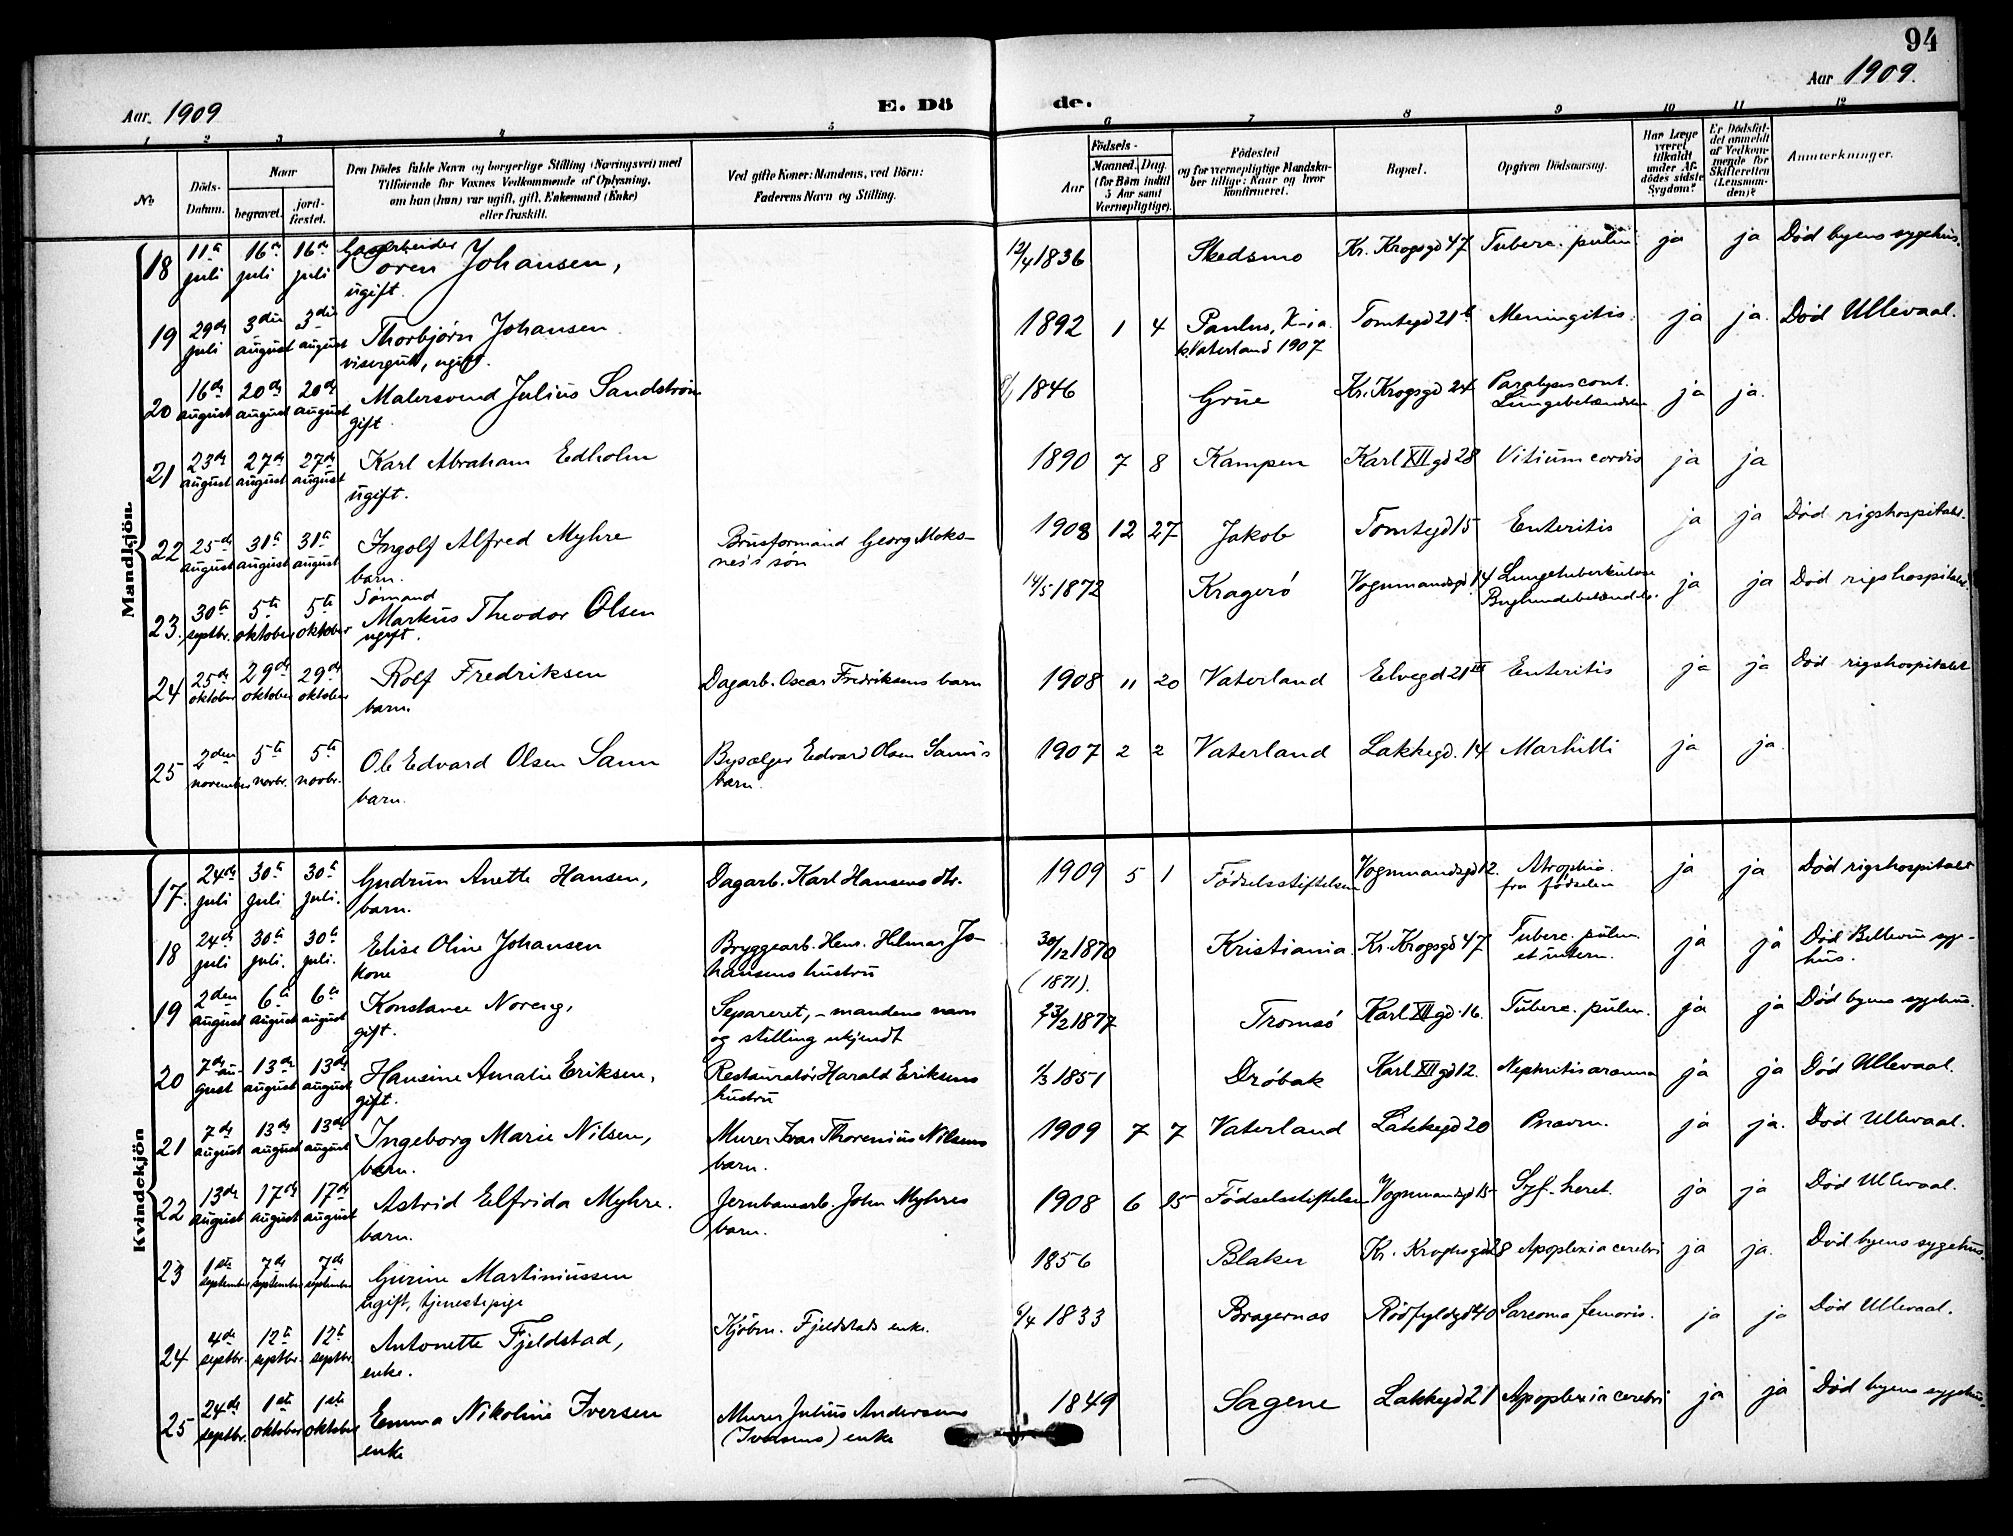 94
Aar 1909
E. Dö
de.
Aar 1909.
1 2 3 4 5 6 7 8 9 10 11 12
No
Döds-
Datum.
Naar
begravet.
jord-
fæstet.
Den Dödes fulde Navn og borgerlige Stilling (Næringsvei) med
Tilföiende for Voxnes Vedkommende af Oplysning,
om han (hun) var ugift, gift, Enkemand (Enke)
eller fraskilt.
Ved gifte Koner: Mandens, ved Börn:
Faderens Navn og Stilling.
Födsels-
Aar
Maaned. Dag.
(for Börn indtil
5 Aar samt
Værnepligtige).
Födested
og for værnepligtige Mandska-
ber tillige: Naar og hvor
konfirmeret.
Bopæl.
Opgiven Dödsaarsag.
Har Læge
været
tilkaldt
under Af-
dödes sidste
Sygdom?
Er Dödsfal-
det anmeldt
af Vedkom-
mende for
Skifteretten
(Lensman-
den)?
Anmærkninger.
Mandkjön.
18 11te juli 16de juli 16de juli Søren Johansen, ugift. 12/4 1836 Skedsmo Kr. Krogsgd 47 Tuberc. pulm ja ja Død byens sygehus.
19 29de juli 3die august 3die august Thorbjørn Johansen visergut, ugift. 1892 1 4 Paulus, K-ia. k. Vaterland 1907 Tomtegd 21b Meningitis. ja ja. Død Ullevaal.
20 16de august 20de august 20de august Malersvend Julius Sandstrøm gift. 1846 Grue Kr. Krogsgd 24 Paralysis cont. Lungebetændelse ja ja.
21 23de august 27de august 27de august Karl Abraham Edholm ugift. 1890 7 8 Kampen Karl XII gd 28 Vitium cordis ja ja
22 25de august 31te august 31te august Ingolf Alfred Myhre barn. Brusformand Georg Moks-
nes's søn 1908 12 27 Jakob Tomtegd 15 Enteritis ja ja Død rigshospitalet.
23. 30te septbr. 5te oktober 5te oktober Sømand Markus Theodor Olsen ugift. 14/5 1872 Kragerø Vognmandsgd. 14 Lungetuberkulose ja ja Død rigshospitalet.
24 25de oktober 29de oktober 29de oktober Rolf Fredriksen barn. Dagarb. Oscar Fredriksens barn 1908 11 20 Vaterland Elvegd 21 III Enteritis ja ja Død rigshospitalet
25 2den november 5te novbr. 5te novbr. Ole Edvard Olsen Sann barn. Bysælger Edvard Olsen Sann's
barn. 1907 2 2 Vaterland Lakkegd. 14 Morbilli ja ja.
Kvindekjön
17. 24de juli 30te juli 30te juli. Gudrun Anette Hansen, barn. Dagarb. Karl Hansens dtr. 1909 5 1 Fødselsstiftelsen Vognmandsgd 12. Atrophia. fra fødselen ja ja Død rigshospitalet
18 24de juli 30te juli. 30te juli. Elise Oline Johansen kone Bryggearb. Hens. Hilmar Jo-
hansens hustru 30/12 1870 (1871). Kristiania. Kr. Krogsgd 47 Tuberc. pulm. et intern. ja ja Død Bellevue syge-
hus.
19 2den august 6te august 6te august Konstance Noreng, gift. Separeret, – mandens navn
og stilling ukjendt 23/2 1877 Tromsø Karl XII gd. 16. Tuberc. pulm. ja ja Død byens sygehus.
20 7de au-
gust 13de august 13de august Hansine Amalie Eriksen, gift. Restauratør Harald Eriksens
hustru 1/3 1851 Drøbak Karl XII gd 12. Nephritis ja ja Død Ullevaal.
21 7de august 13de august 13de august Ingeborg Marie Nilsen, barn. Murer Ivar Thorenius Nilsens
barn. 1909 7 7 Vaterland Lakkegd 20 Pnevm. ja ja. Død Ullevaal.
22 13de august 17de august 17de august Astrid Elfrida Myhre. barn. Jernbanearb. John Myhres
barn. 1908 6 25 Fødselsstiftelsen Vognmandsgd 15 Syf. heret. ja ja Død Ullevaal.
23 1ste september 7de september 7de september Gurine Martiniussen ugift, tjenestepige 1856 Blaker Kr. Kroghsgd 28 Apoplexia cerebri ja ja. Død byens sygehus.
24 4de septbr. 12te septbr. 12te septbr. Antonette Fjeldstad, enke. Kjøbm. Fjeldstads enke. 6/4 1833 Bragernæs Rødfyldgd 40 Sarcoma femoris. ja ja Død Ullevaal.
25 24de septbr. 1ste oktober 1ste oktober Emma Nikoline Iversen enke Murer Julius Andersens
(Iversens) enke 1849 Sagene Lakkegd 21 Apoplexia cerebri ja ja Død byens sygehus.